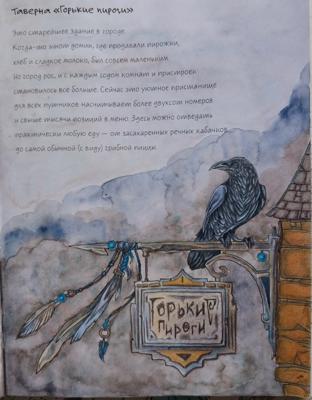 Таверна «Горькие пироги»
Это старейшее здание в городе.
Когда-то этот домик, где продавали пирожки,
хлеб и сладкое молоко, был совсем маленьким.
Но город рос, и с каждым годом комнат и пристроек
становилось всё больше. Сейчас это уютное пристанище
для всех путников насчитывает более двухсот номеров
и свыше тысячи позиций в меню. Здесь можно отведать
практически любую еду — от засахаренных речных кабачков
до самой обычной (с виду) грибной пиццы.
Горькие
Пироги